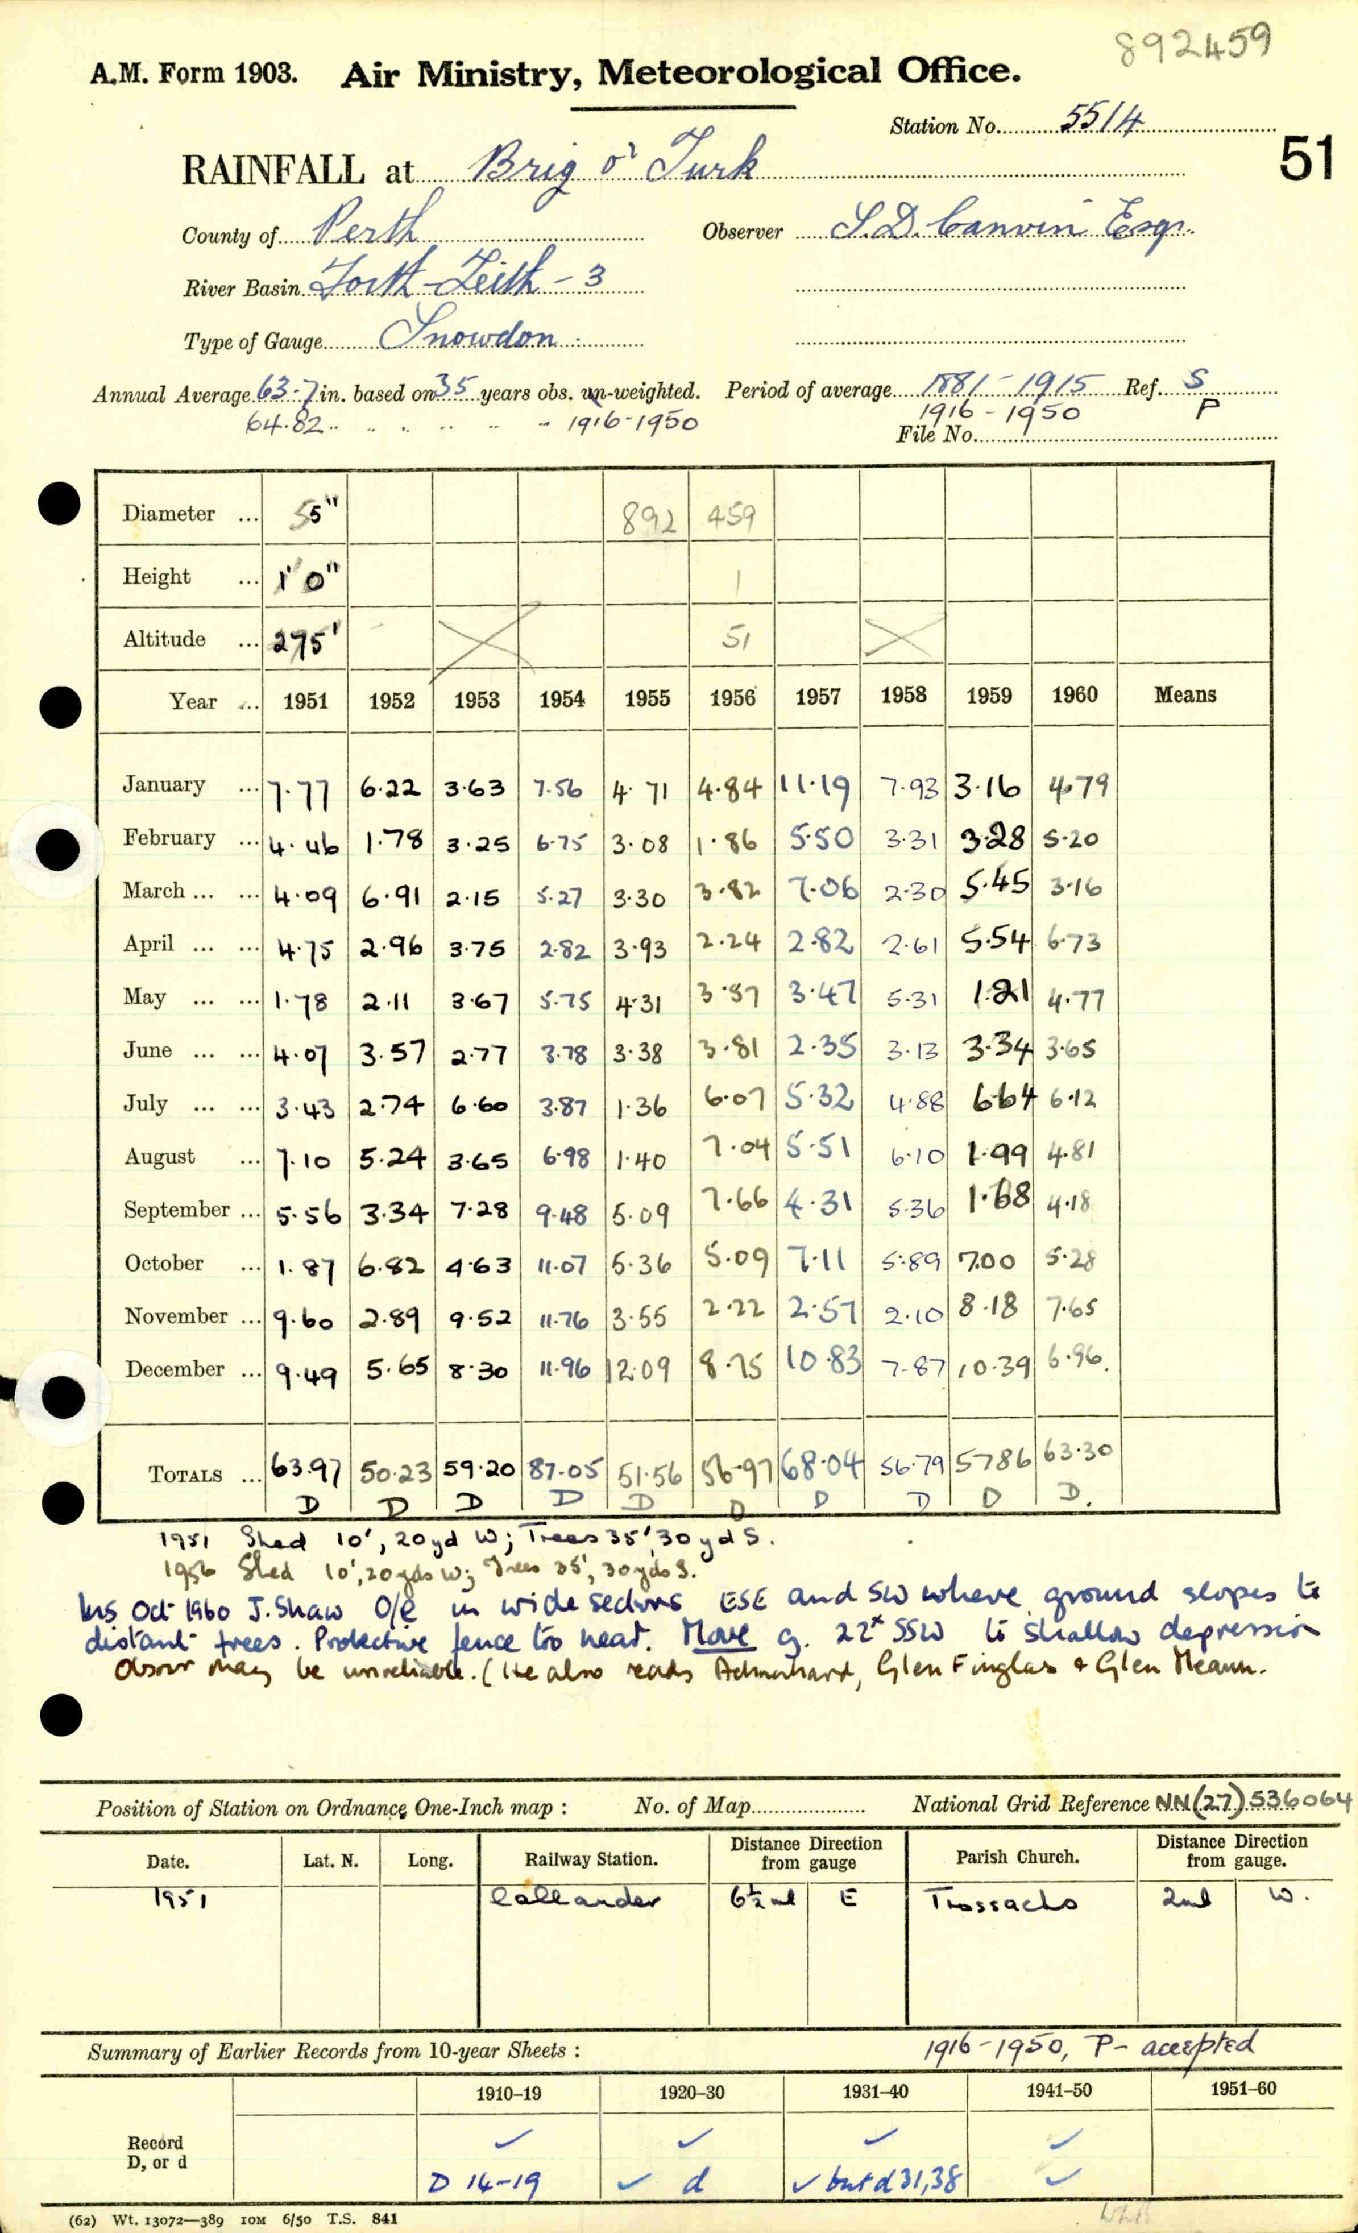 892459
A.M. Form 1903. Air Ministry, Meteorological Office.
Station No. 5514
51
RAINFALL at Brig o' Turk
County of Perth Observer S.D. Canvin Esqr.
River Basin Forth-Teith-3
Type of Gauge Snowdon
Annual Average 63.7 in. based on 35 years obs. un-weighted. Period of average 1881-1915 Ref. S
64.82 " " " " " " 1916-1950 1916-1950 P
File No.
Diameter ... 5" 892 459
Height ... 1'0" 1
Altitude ... 275' 51
Year ... 1951 1952 1953 1954 1955 1956 1957 1958 1959 1960 Means
January ... 7.77 6.22 3.63 7.56 4.71 4.84 11.19 7.93 3.16 4.79
February ... 4.46 1.78 3.25 6.75 3.08 1.86 5.50 3.31 3.28 5.20
March ... ... 4.09 6.91 2.15 5.27 3.30 3.82 7.06 2.30 5.45 3.16
April ... ... 4.75 2.96 3.75 2.82 3.93 2.24 2.82 2.61 5.54 6.73
May ... ... 1.78 2.11 3.67 5.75 4.31 3.57 3.47 5.31 1.21 4.77
June ... ... 4.07 3.57 2.77 3.78 3.38 3.81 2.35 3.13 3.34 3.65
July ... ... 3.43 2.74 6.60 3.87 1.36 6.07 5.32 4.88 6.64 6.12
August ... 7.10 5.24 3.65 6.98 1.40 7.04 5.51 6.10 1.99 4.81
September ... 5.56 3.34 7.28 9.48 5.09 7.66 4.31 5.36 1.68 4.18
October ... 1.87 6.82 4.63 11.07 5.36 5.09 7.11 5.89 7.00 5.28
November ... 9.60 2.89 9.52 11.76 3.55 2.22 2.57 2.10 8.18 7.65
December ... 9.49 5.65 8.30 11.96 12.09 8.75 10.83 7.87 10.39 6.96.
TOTALS ... 63.97 50.23 59.20 87.05 51.56 56.97 68.04 56.79 57.86 63.30
D D D D D D D D D D.
1951 Shed 10', 20yd W; Trees 35', 30yd S.
1956 Shed 10', 20yds W; Trees 35', 30yds S.
Ins Oct 1960 J. Shaw O/e in wide sectors ESE and SW where ground slopes to
distant trees. Protective fence too near. Move g. 22x SSW to shallow depression
Obsvr may be unreliable. (He also reads Achnahard, Glen Finglas + Glen Meann.
Position of Station on Ordnance One-Inch map : No. of Map National Grid Reference NN(27)536064
Date. Lat. N. Long. Railway Station. Distance Direction from gauge Parish Church. Distance Direction from gauge.
1951 Callander 6½ml E Trossachs 2ml W.
Summary of Earlier Records from 10-year Sheets : 1916-1950, P- accepted
1910–19 1920–30 1931–40 1941–50 1951–60
Record ✓ ✓ ✓ ✓
D, or d D 14-19 ✓ d ✓ but d 31,38 ✓
(62) Wt. 13072—389 10M 6/50 T.S. 841